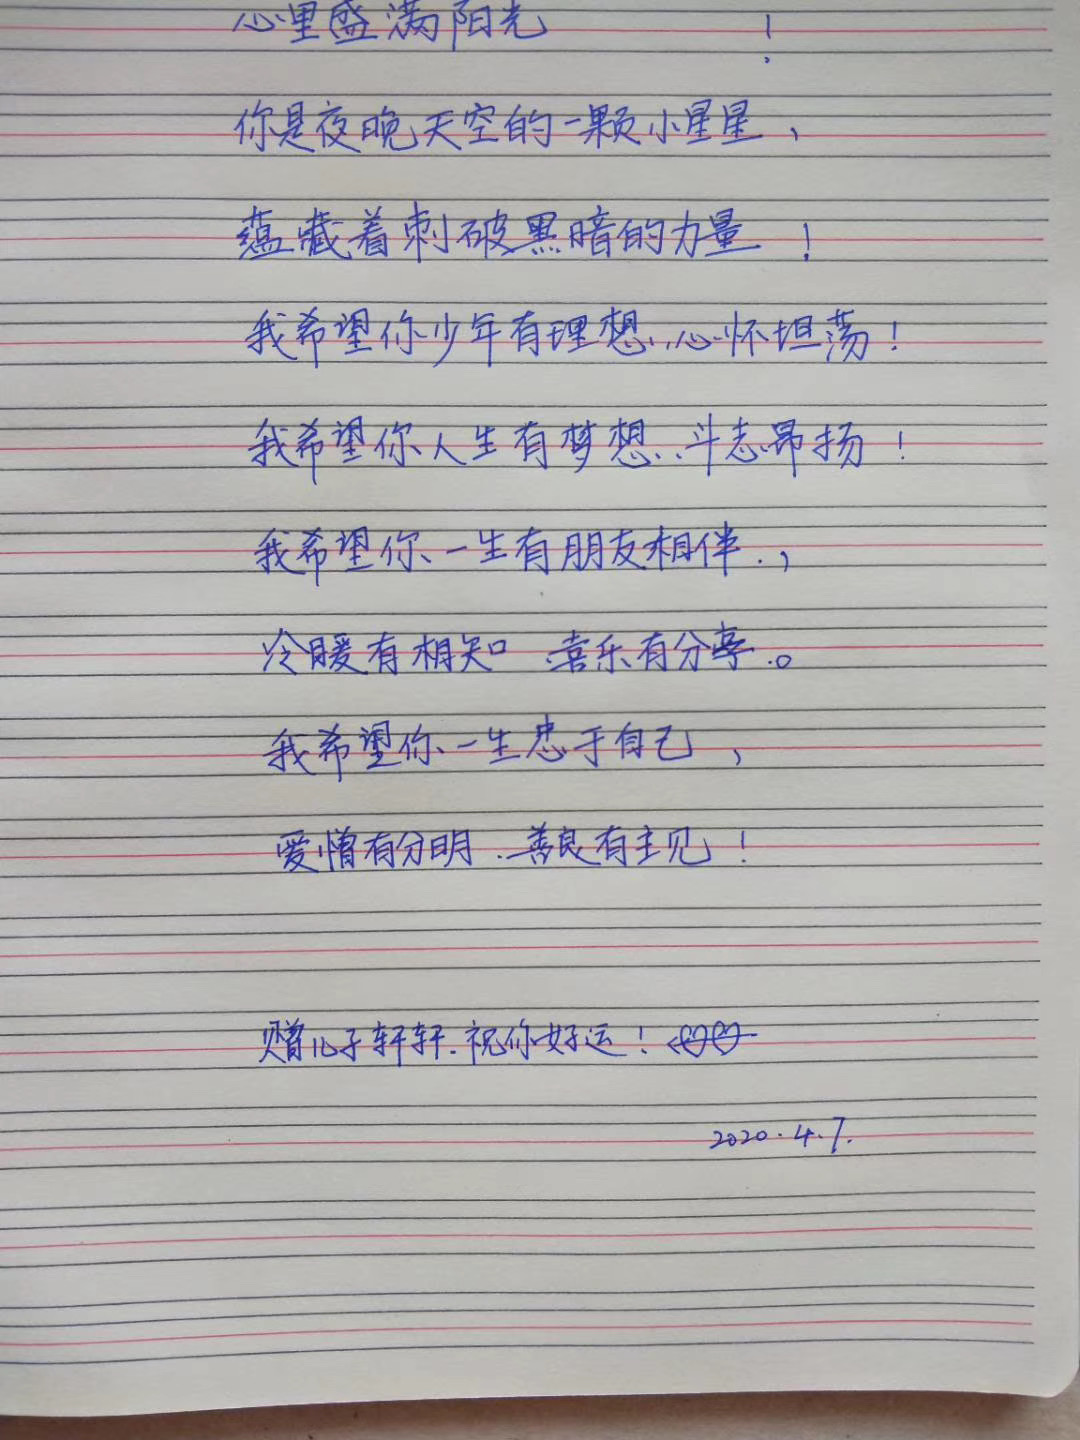 心里盛满阳光！
你是夜晚天空的一颗小星星、
蕴藏着刺破黑暗的力量！
我希望你少年有理想、心怀坦荡！
我希望你人生有梦想、斗志昂扬！
我希望你、一生有朋友相伴.,
冷暖有相知 、喜乐有分享。
我希望你、一生忠于自己，
爱憎有分明、善良有主见！
赠儿子轩轩.祝你好运！
2020.4.7.